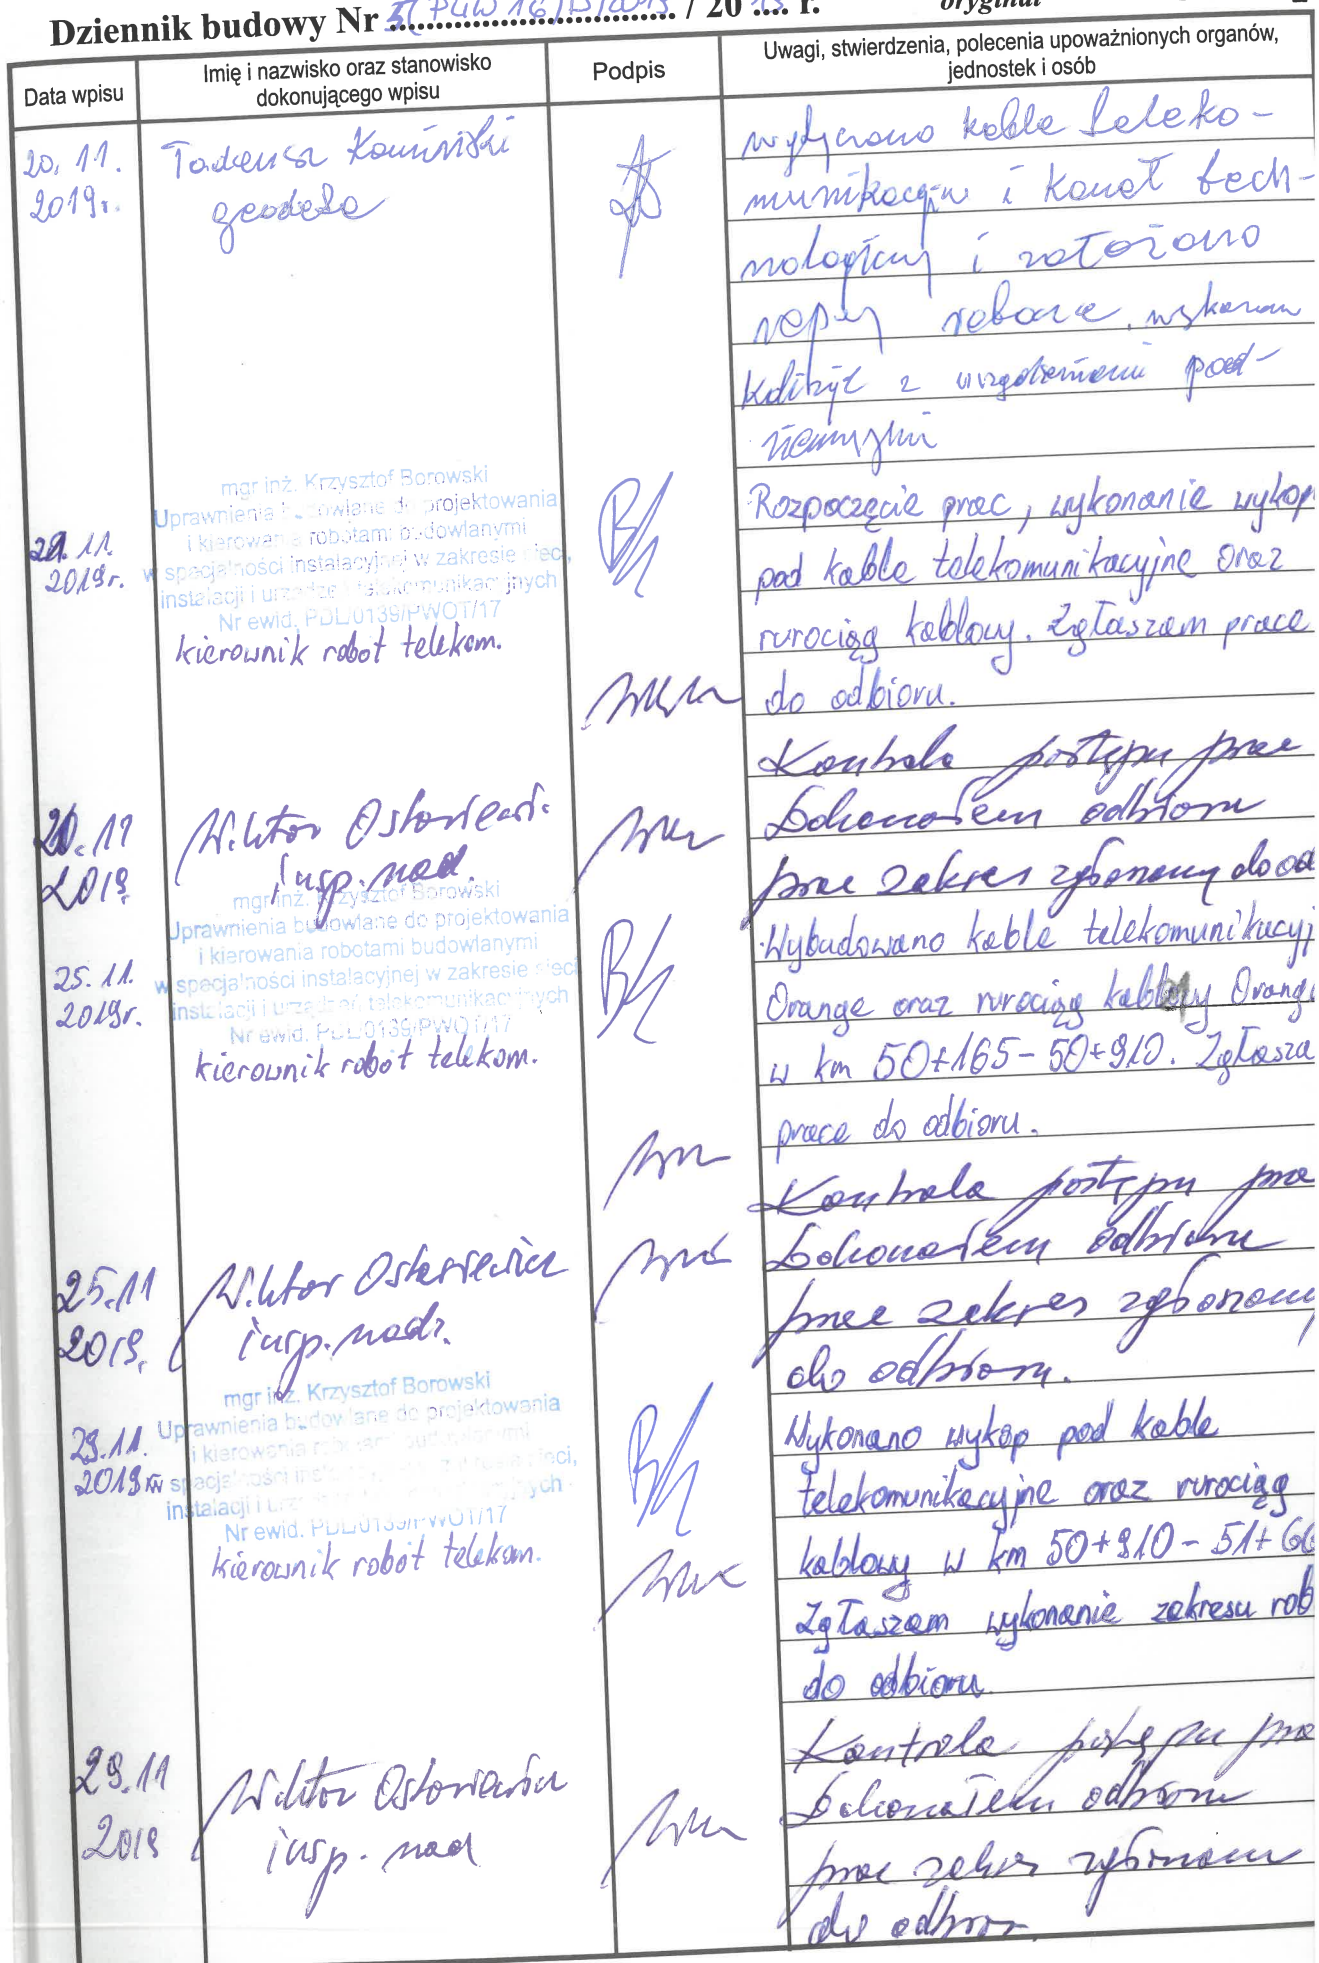 Dziennik budowy Nr / 20 r. oryginał
Data wpisu
Imię i nazwisko oraz stanowisko
dokonującego wpisu
Podpis
Uwagi, stwierdzenia, polecenia upoważnionych organów,
jednostek i osób
20.11.
2019r.
Tadeusz Kamiński
geodeta
wytyczono kable teleko-
munikacyjn i kanał tech-
nologiczny i założono
repery robocze.
kolizyt z pod-
ziemnymi
11.
2019r.
mgr inż. Krzysztof Borowski
Uprawnienia budowlane do projektowania
i kierowania robotami budowlanymi
w specjalności instalacyjnej w zakresie sieci,
instalacji i urządzeń telekomunikacyjnych
Nr ewid. PDL/0139/PWOT/17
kierownik robót telekom.
Rozpoczęcie prac, wykonanie wykop
pod kable telekomunikacyjne oraz
rurociąg kablowy. Zgłaszam prace
do odbioru.
11
2019
Wiktor
insp. nad.
Kontrola postępu prac
Dokonałem odbioru
prac zakres zgłoszony do od
25.11.
2019r.
mgr inż. Krzysztof Borowski
Uprawnienia budowlane do projektowania
i kierowania robotami budowlanymi
w specjalności instalacyjnej w zakresie sieci
instalacji i urządzeń telekomunikacyjnych
Nr ewid. PDL/0139/PWOT/17
kierownik robót telekom.
Wybudowano kable telekomunikacyj
Orange oraz rurociąg kablowy Orange
w km 50+165-50+910. Zgłasza
prace do odbioru.
25.11
2019.
Wiktor
insp. nadz.
Kontrola postępu pra
Dokonałem odbioru
prac zakres zgłoszony
do odbioru.
29.11.
2019
mgr inż. Krzysztof Borowski
Uprawnienia budowlane do projektowania
i kierowania robotami budowlanymi
w specjalności
instalacji i
Nr ewid. PDL/0139/PWOT/17
kierownik robót telekom.
Wykonano wykop pod kable
telekomunikacyjne oraz rurociąg
kablowy w km 50+910-51+66
Zgłaszam wykonanie zakresu rob
do odbioru.
29.11
2019
Wiktor
insp. nad
Kontrola postępu pra
Dokonałem odbioru
prac zakres
do odbior.